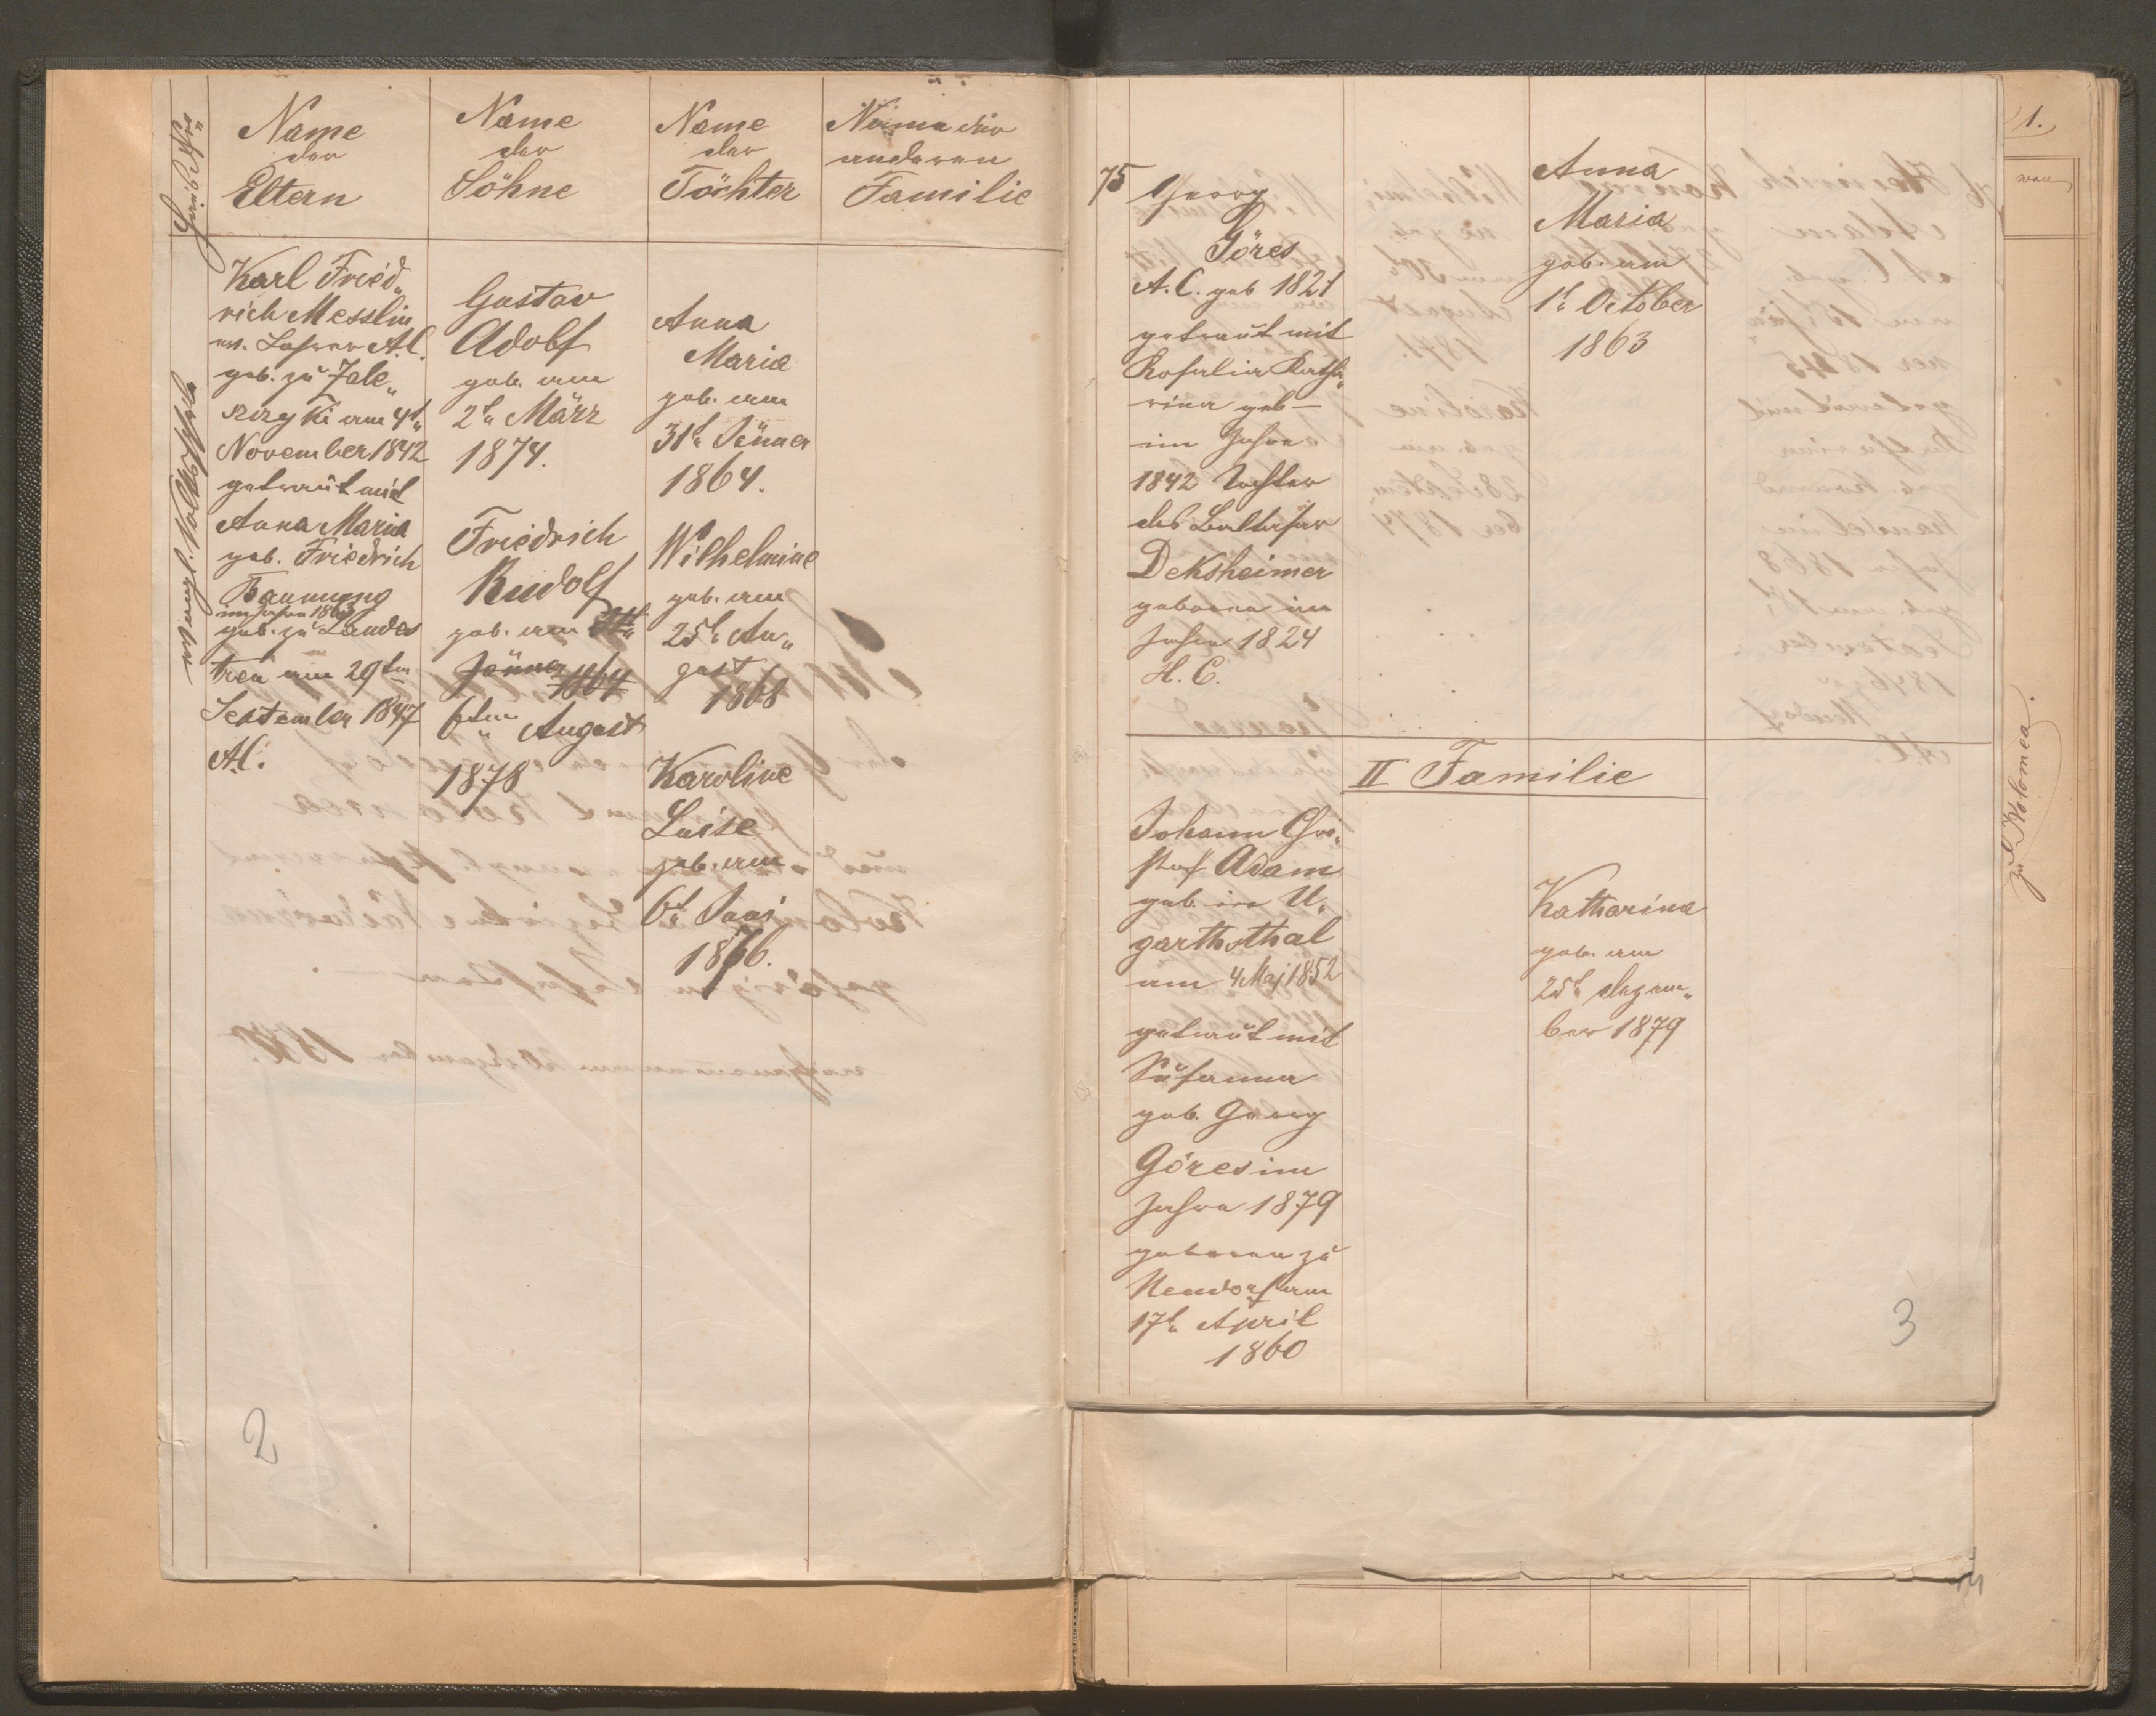 Haus Nro
Name
der
Eltern
Name
der
Söhne
Name
der
Töchter
Name der
anderen
Familie
evangl. Volksschule
Karl Fried„
rich Messlin
ev. Lehrer A.C.
geb. zu Zale„
szczyki am 4t„
November 1842
getraut mit
Anna Maria
geb. Friedrich
Baumung
im Jahre 1863
geb. zu Landes
treu am 29ten
September 1847
A.C.
Gustav
Adolf
geb. am
2t„ März
1874.
Friedrich
Rudolf
geb. am 31t„
Jänner
1864
6ten August
1878
Anna
Maria
geb. am
31t„ Jänner
1864.
Wilhelmine
geb. am
25t„ Au„
gust
1868
Karoline
Luise
geb. am
6t„ Juni
1876.
2
75
Georg
Göres
A.C. geb 1821
getraut mit
Rosalia Katha„
rina geb –
im Jahre
1842 Tochter
des Baltasar
Deksheimer
geboren im
Jahre 1824
H.C.
Anna
Maria
geb. am
1t„ October
1863
II Familie
Johann Chri„
stof Adam
geb. in U„
garthsthal
am 4 Maj 1852
getraut mit
Susanna
geb. Georg
Göres im
Jahre 1879
geboren zu
Neudorf am
17t„ April
1860
Katharina
geb. am
25t„ Dezem„
ber 1879
3
1.
zu Kolomea.